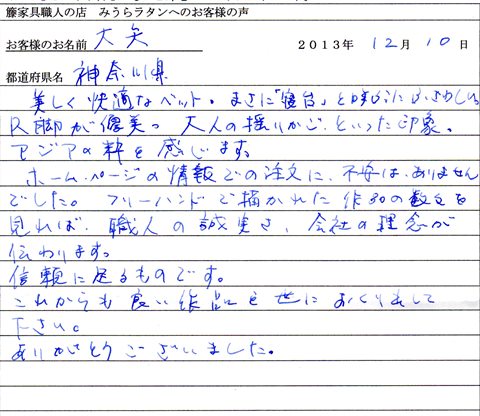 籐家具職人の店　みうらラタンへのお客様の声
お客様のお名前 大矢 2013年 12月 10日
都道府県名 神奈川県
美しく快適なベット。まさに「寝台」と呼ぶにふさわしい。
R脚が優美で 大人の揺りかごといった印象。
アジアの粋を感じます。
ホームページの情報での注文に、不安はありません
でした。 フリーハンドで描かれた作品の数々を
見れば、職人の誠実さ、会社の理念が
伝わります。
信頼に足るものです。
これからも良い作品を世におくり出して
下さい。
ありがとうございました。